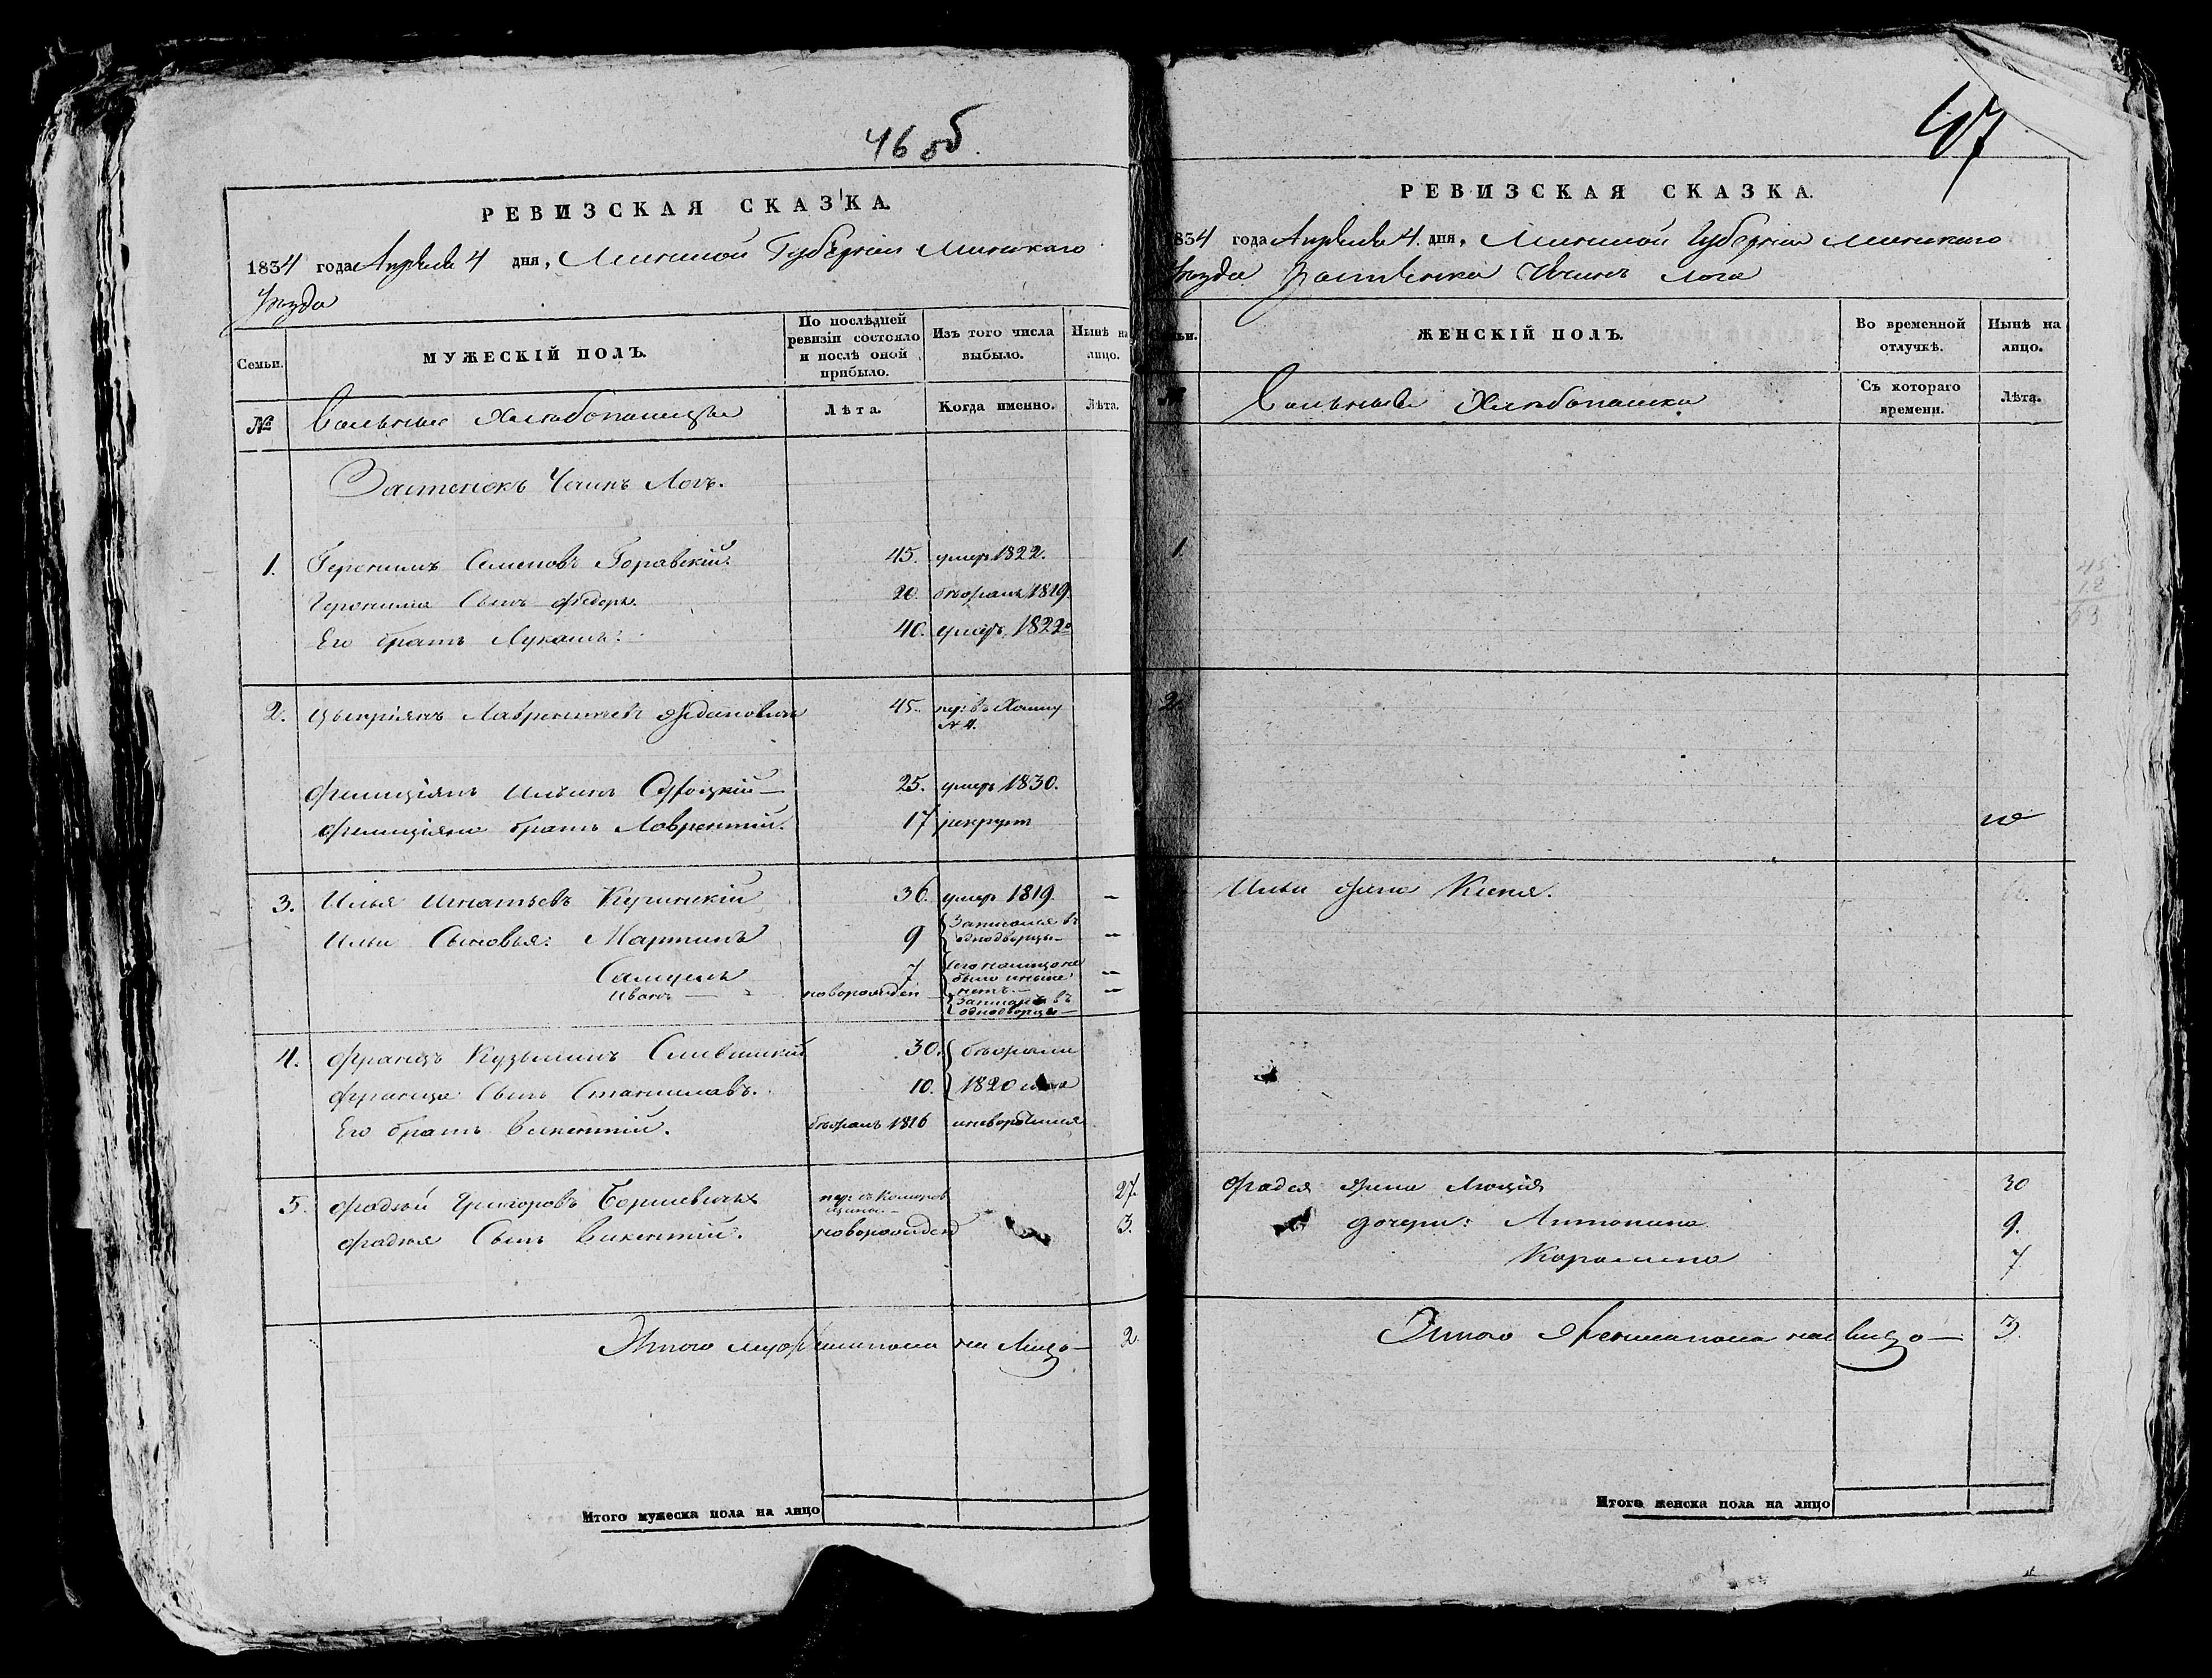 46 об.
РЕВИЗСКАЯ СКАЗКА.
1834 года Апреля 4 дня, Минской Губернии Минскаго
Уезда
Семьи.
МУЖЕСКІЙ ПОЛЪ.
По послѣдней ревизіи состояло и послѣ оной прибыло.
Изъ того числа выбыло.
Нынѣ на лицо.
№
Вольные Хлебопашцы
Лѣта.
Когда именно.
Лѣта.
Застенокъ Логъ.
1. Геронимъ Семеновъ Горавскій 45. умеръ 1822.
Геронима Сынъ Федоръ. 20. бежалъ 1819.
Его братъ Лукашъ: 40. умеръ 1822
2. Лаврентьевъ Ждановичь 45. пер: въ
№ 4.
Фелиціянъ Ильинъ 25. умеръ 1830.
Фелиціяна братъ Лаврентій. 17 рекрут
3. Илья Игнатьевъ 36. умер 1819. –
Ильи Сыновья: Мартинъ 9 Записался въ однодворцы –
Самуель 7 его налицо не было и ныне нетъ. –
Иванъ – новорожден Записан въ однодворцы –
4. Францъ Кузьминъ 30. бежали
Франца Сынъ Станиславъ. 10. 1820 года
Его братъ Викентій. бежалъ 1816 и невозвратился
5. Фадей Григоровъ пер: съ 27.
Фадея Сынъ Викентій. новорожден 3.
Итого мужеска пола на Лицо – 2.
Итого мужеска пола на лицо
47
РЕВИЗСКАЯ СКАЗКА.
1834 года Апреля 4. дня, Минской Губернии Минскаго
Уезда Застенка Лога
Семьи.
ЖЕНСКІЙ ПОЛЪ.
Во временной отлучкѣ.
Нынѣ на лицо.
№
Вольные Хлебопашки
Съ котораго времени.
Лѣта.
1.
2.
Ильи жена
Фадея жена Люція 30
дочери: Антонина 9.
Каролина 7
Итого Женска пола на лицо – 3.
Итого женска пола на лицо